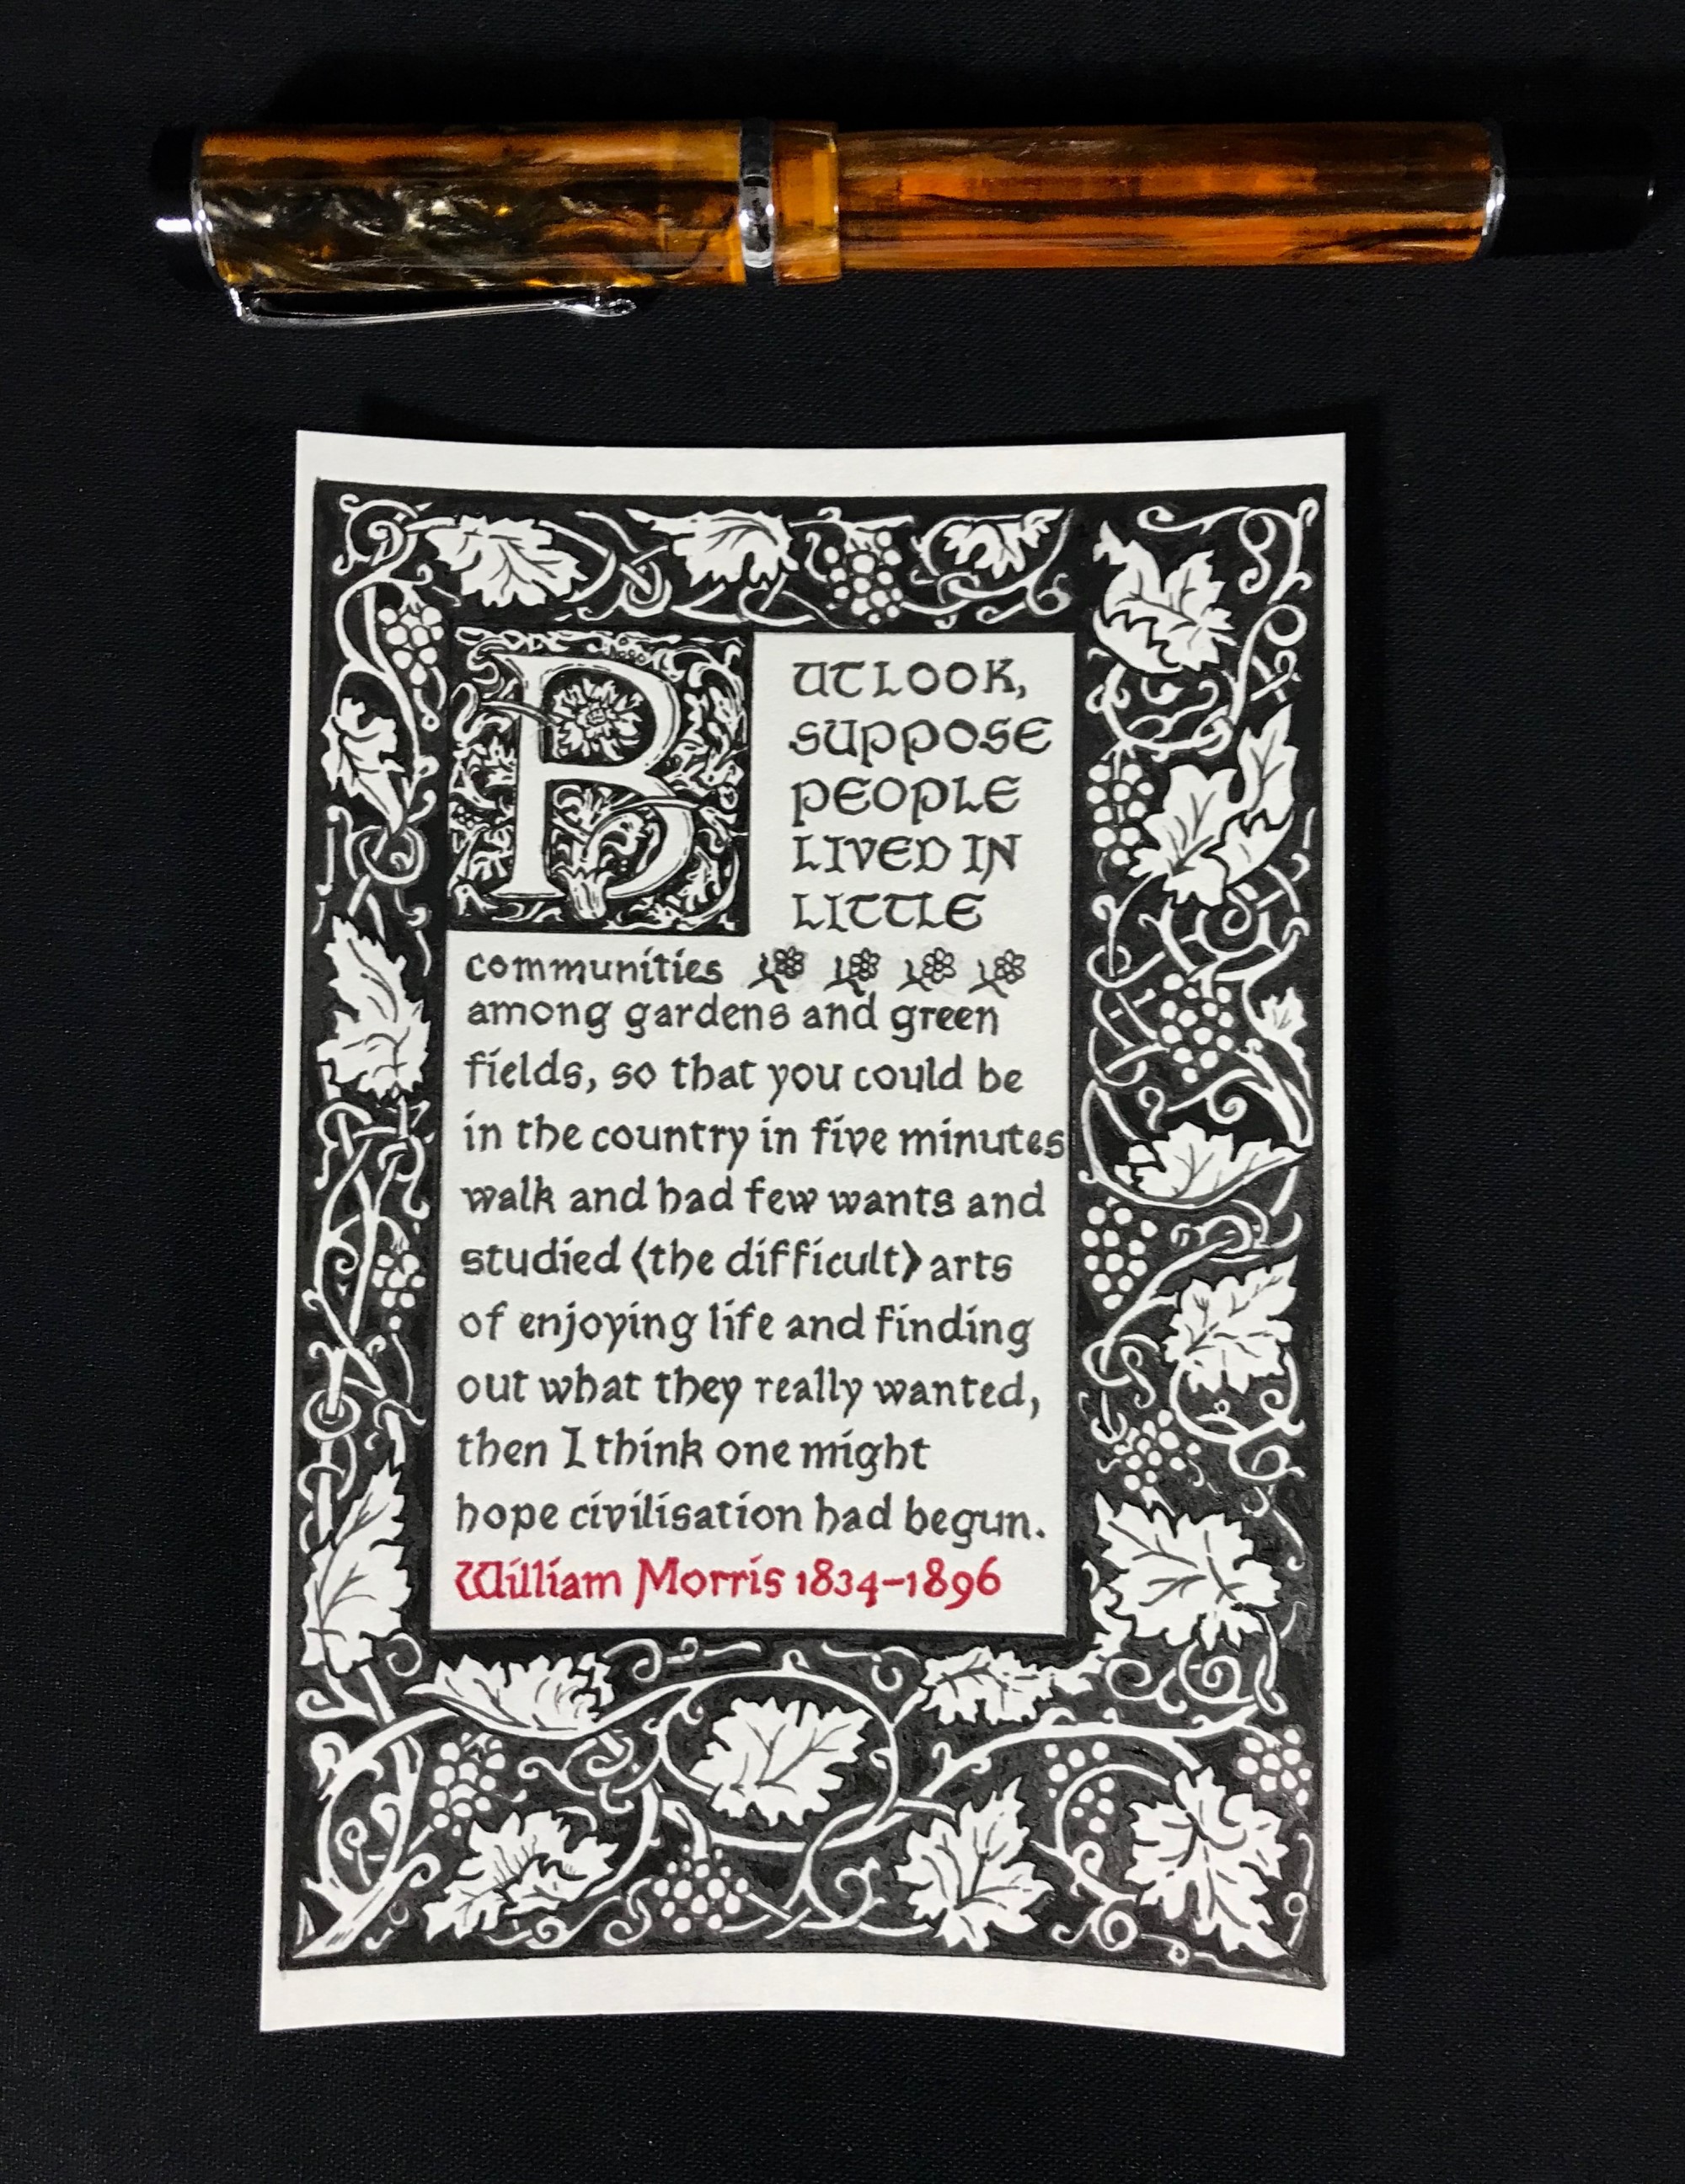 BUT LOOK,
SUPPOSE
PEOPLE
LIVED IN
LITTLE
communities
among gardens and green
fields, so that you could be
in the country in five minutes
walk and had few wants and
studied (the difficult) arts
of enjoying life and finding
out what they really wanted,
then I think one might
hope civilisation had begun.
William Morris 1834-1896